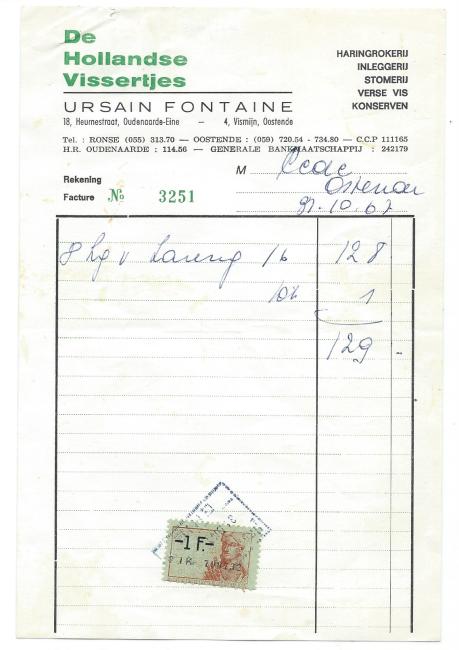 De
Hollandse
Vissertjes
HARINGROKERIJ
INLEGGERIJ
STOMERIJ
VERSE VIS
KONSERVEN
URSAIN FONTAINE
18, Heurnestraat, Oudenaarde-Eine — 4, Vismijn, Oostende
Tel. : RONSE (055) 313.70 — OOSTENDE : (059) 720.54 - 734.80 — C.C.P 111165
H.R. OUDENAARDE : 114.56 — GENERALE BANKMAATSCHAPPIJ : 242179
Rekening
Facture № 3251
M
10.67
8 kg v 16 128
1
129 -
-1 F.-